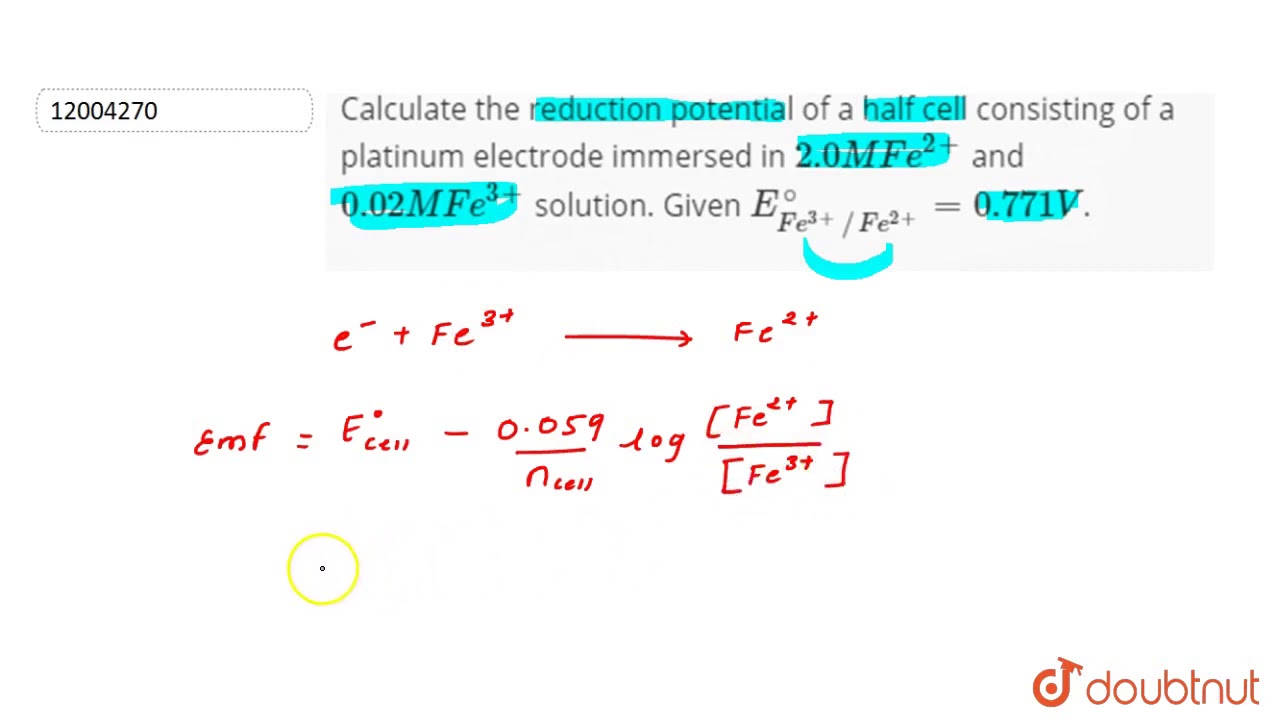 12004270
Calculate the reduction potential of a half cell consisting of a
platinum electrode immersed in 2.0MFe²⁺ and
0.02MFe³⁺ solution. Given E°Fe³⁺/Fe²⁺ = 0.771V.
e⁻ + Fe³⁺ ⟶ Fe²⁺
Emf = E°cell − 0.059/ncell log [Fe²⁺]/[Fe³⁺]
doubtnut